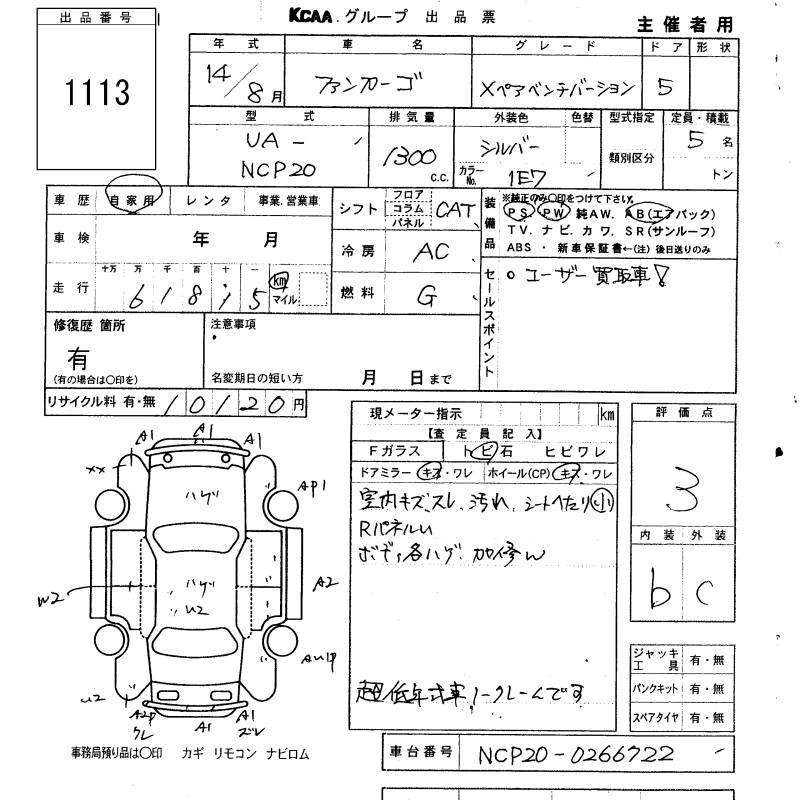 出品番号
1113
KCAA グループ 出品票
主催者用
年式 車名 グレード ドア 形状
14/8月 ファンカーゴ Xペアベンチバーション 5
型式 排気量 外装色 色替 型式指定 定員・積載
UA-
NCP20
1300 c.c.
シルバー
カラーNo. 1E7
類別区分
5名
トン
車歴 自家用 レンタ 事業、営業車
車検 年 月
走行 十万 万 千 百 十 一
61815 km マイル
シフト フロア コラム パネル CAT
冷房 AC
燃料 G
装備品
※純正のみ○印をつけて下さい。
PS PW 純AW. AB(エアバック)
TV. ナビ. カワ. SR(サンルーフ)
ABS ・ 新車保証書←(注)後日送りのみ
セールスポイント
○ユーザー買取車!
修復歴 箇所
有
(有の場合は○印を)
注意事項
名変期日の短い方 月 日まで
リサイクル料 有・無 10120円
現メーター指示 km
【査定員記入】
Fガラス トビ石 ヒビワレ
ドアミラー キズ・ワレ ホイール(CP) キズ・ワレ
室内キズ、スレ、汚れ、シートへたり小
Rパネルu
ボディ各ハゲ、加修w
超低年式車ノークレームです
評価点
3
内装 外装
b C
ジャッキ工具 有・無
パンクキット 有・無
スペアタイヤ 有・無
A1 A1 A1
XX
ハゲ
AP1
ハゲ
U2
W2
A2
U2
A2P
クレ
A1
A1
ズレ
事務局預り品は○印 カギ リモコン ナビロム
車台番号 NCP20-0266722